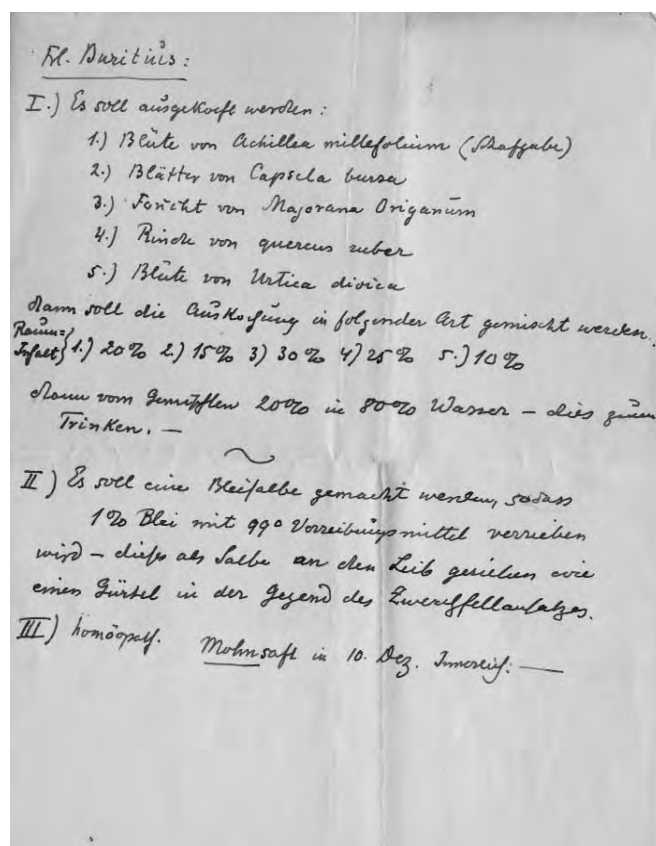 Frl. Buritius:
I.) Es soll ausgekocht werden:
1.) Blüte von Achillea millefolium (Schafgabe)
2.) Blätter von Capsela bursa
3.) Frucht von Majorana Origanum
4.) Rinde von quercus ruber
5.) Blüte von Urtica dioica
dann soll die Auskochung in folgender Art gemischt werden.
Raum=
Inhalt} 1.) 20% 2.) 15% 3) 30% 4) 25% 5.) 10%
dann vom Gemischten 20% in 80% Wasser – dies zum
Trinken. —
II) Es soll eine Bleisalbe gemacht werden, sodass
1% Blei mit 99% Verreibungsmittel verrieben
wird – dieses als Salbe an den Leib gerieben wie
einen Gürtel in der Gegend des Zwerchfellansatzes.
III) homöopath. Mohnsaft in 10. Dez. Innerlich: —